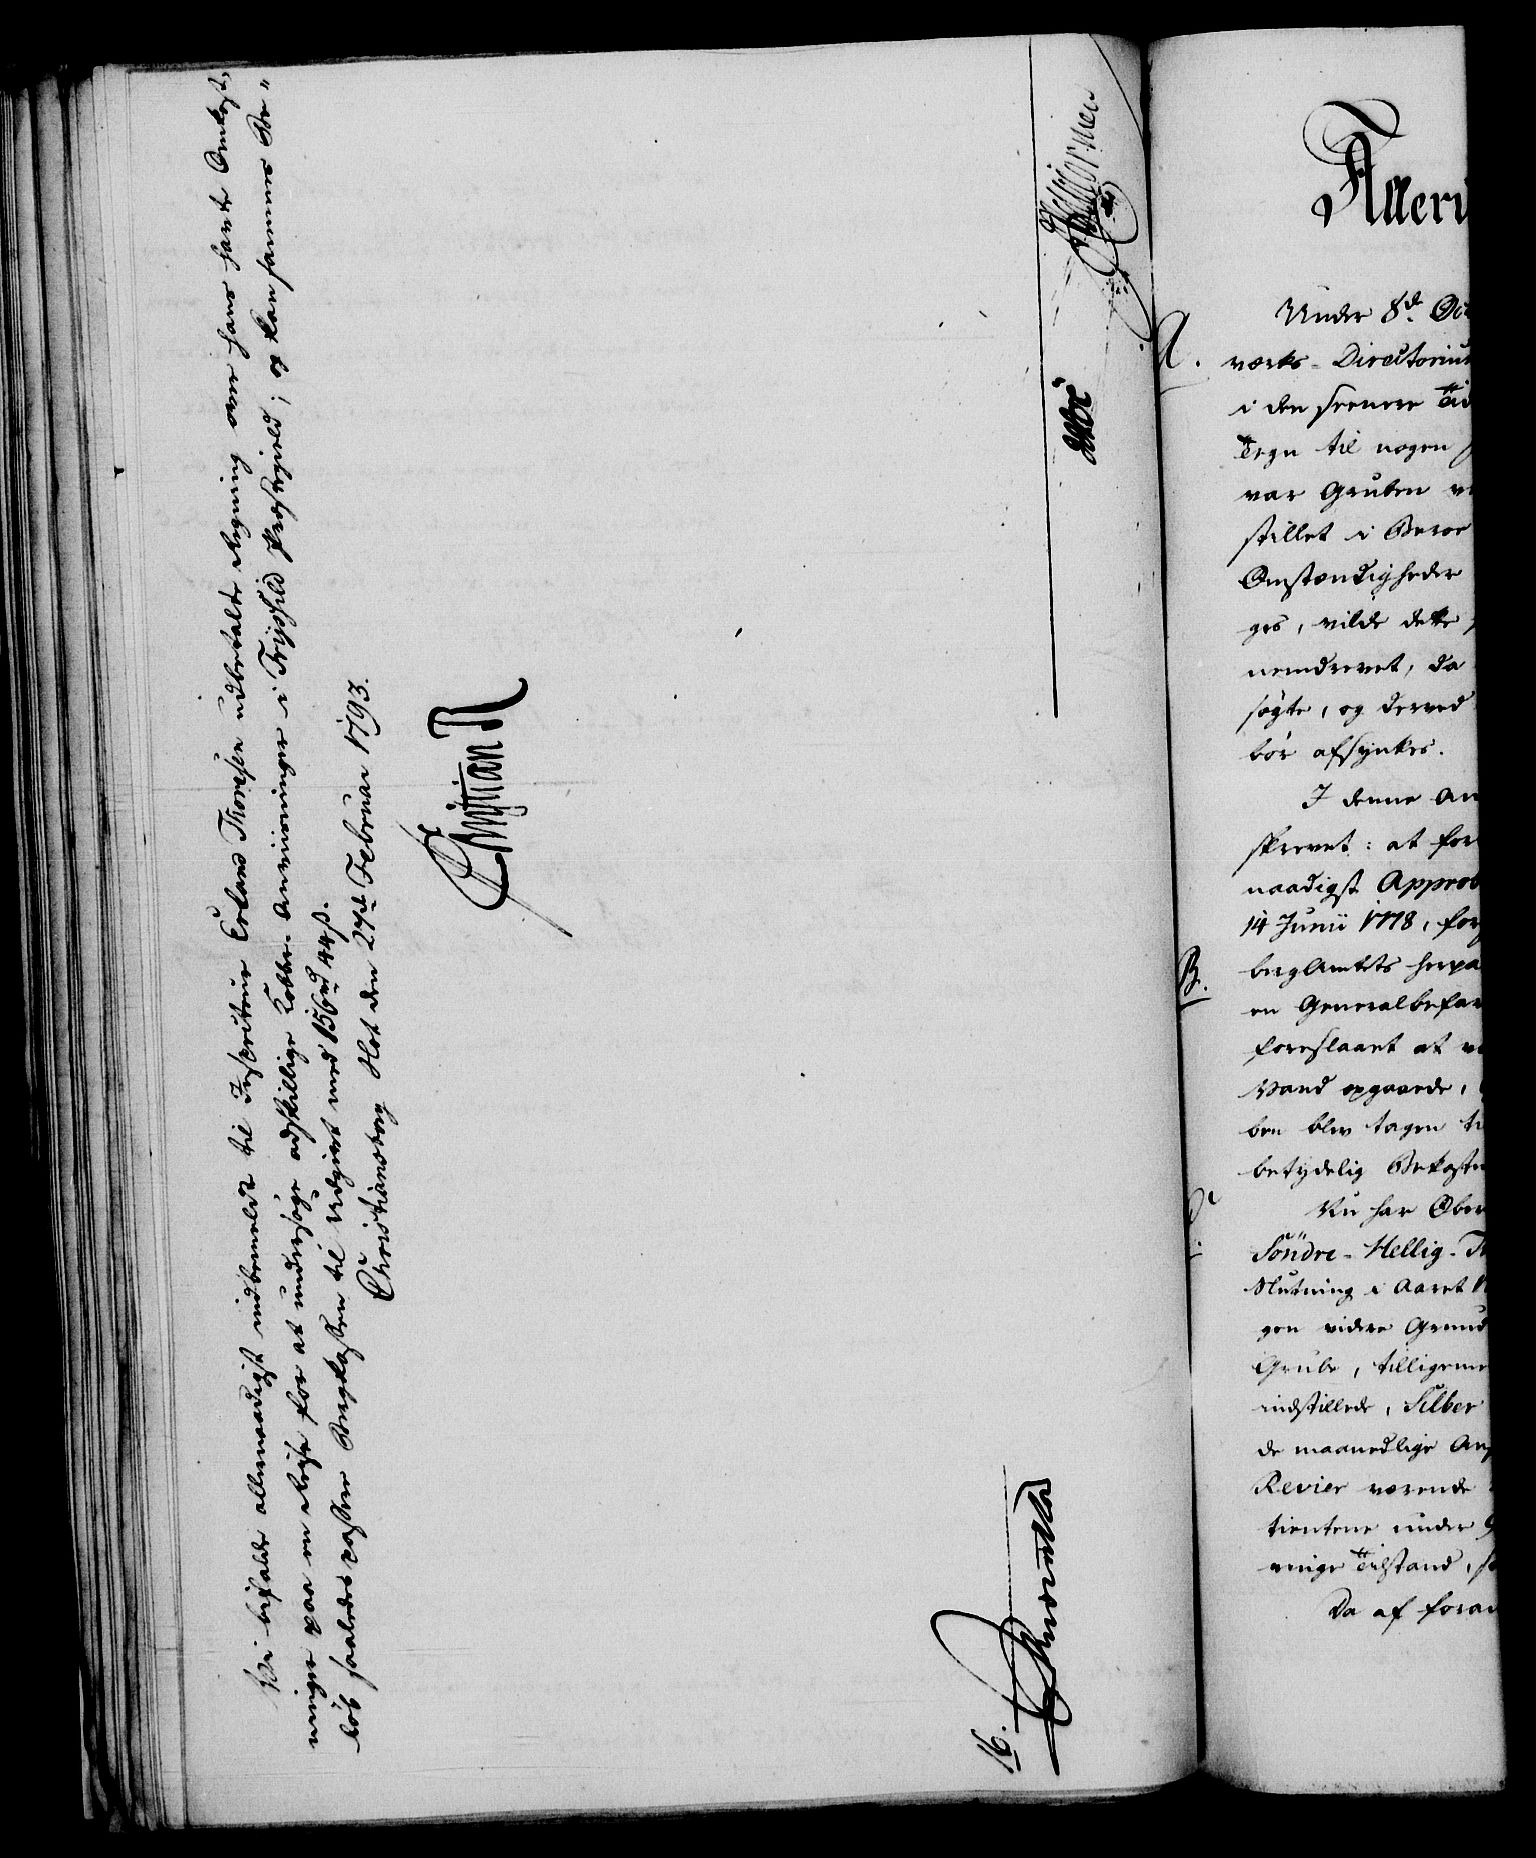 Vi bifalde allernaadigst indbemeldte til Inspecteur Erland Thomsen udbetalte Regning over hans havte Omkost,
ninger paa en Reyse for at undersøge adskillige Kobber-Anviisninger i Trysild Præstegield; og kan sammes Be-
løb saaledes passere Bergkassen til Udgivt med 156 rd 44 ß.
Christiansborg Slot den 27de Februar 1793.
Christian R
16.
A.
B.
Alleru
Under 8de Oct
værks-Directorium
i den seenere Tid
Tegn til nogen
var Gruben
stillet i Beroe
Omstændigheder
ges, vilde dette
nemdrevet, da
søgte, og derved
bør afsynkes.
I denne An
skrevet: at for
naadigst Approb
14 Junii 1778, for
bergAmtets herpaa
en Generalbefar
foreslaaet at
Vand opgaaede,
ben blev tagen
betydelig Bekostn
Nu har Ober
Söndre-Hellig-T
Slutning i Aaret
gen videre Grund
Grube, tilligeme
indstillede, Silber
de maanedlige An
Revier værende
tientene under
rige Tilstand,
Da af foran